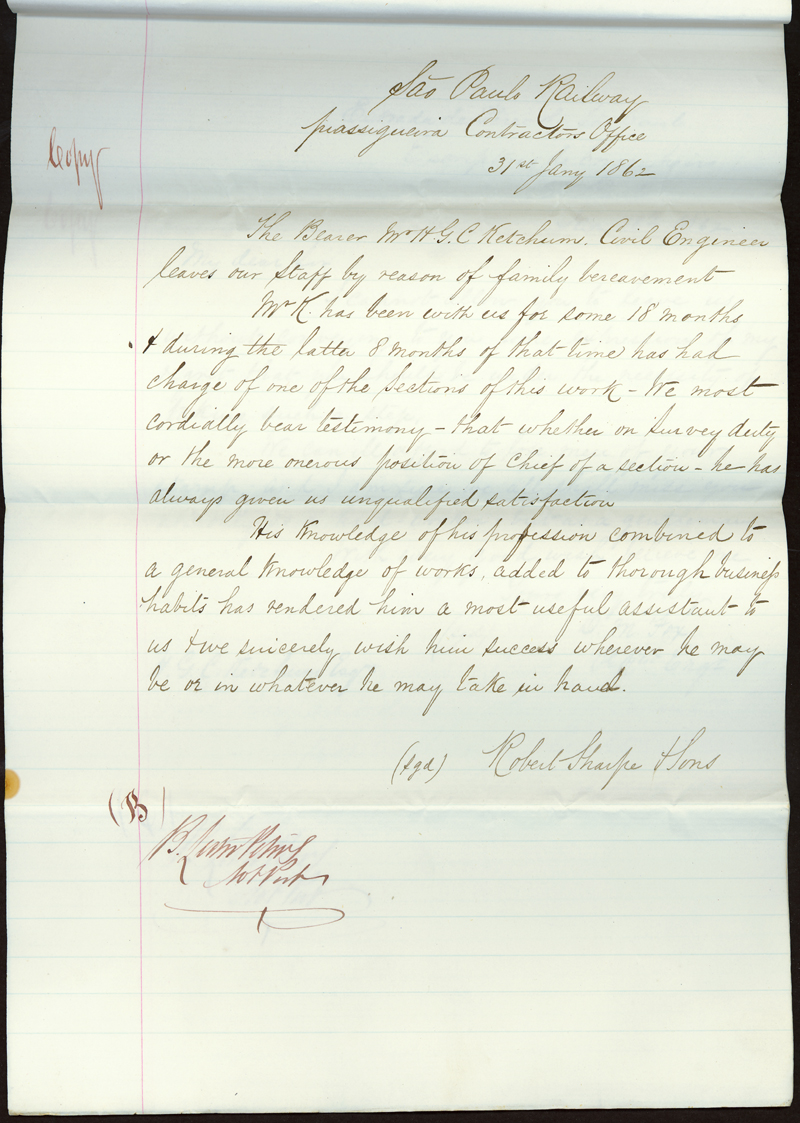 São Paulo Railway
piassigueira Contractors Office
Copy
31st Jany 1862
The Bearer Mr H G. C Ketchum. Civil Engineer
leaves our Staff by reason of family bereavement
Mr K. has been with us for some 18 months
& during the latter 8 months of that time has had
charge of one of the Sections of this work - We most
cordially bear testimony - that whether on Survey duty
or the more onerous position of Chief of a section - he has
always given us unqualified satisfaction
His Knowledge of his profession combined to
a general Knowledge of works, added to thorough business
habits has rendered him a most useful assistant to
us & we sincerely wish him success wherever he may
be or in whatever he may take in hand.
(sgd) Robert Sharpe & Sons
(B)
B.